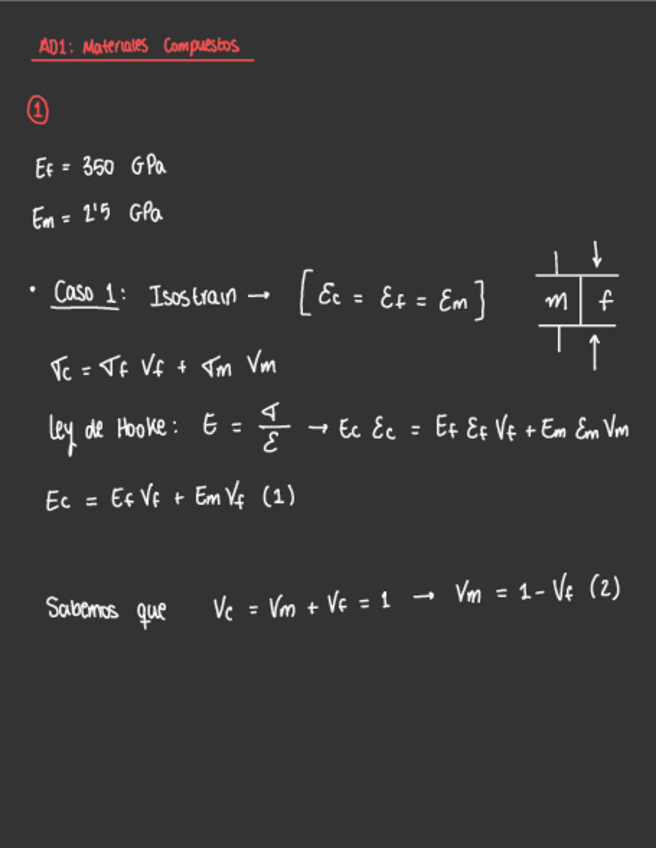 AD1: Materiales Compuestos
①
Ef = 350 GPa
Em = 2'5 GPa
• Caso 1: Isostrain → [εc = εf = εm]
m f
σc = σf Vf + σm Vm
ley de Hooke: E = σ/ε → Ec εc = Ef εf Vf + Em εm Vm
Ec = Ef Vf + Em Vf (1)
Sabemos que Vc = Vm + Vf = 1 → Vm = 1 - Vf (2)